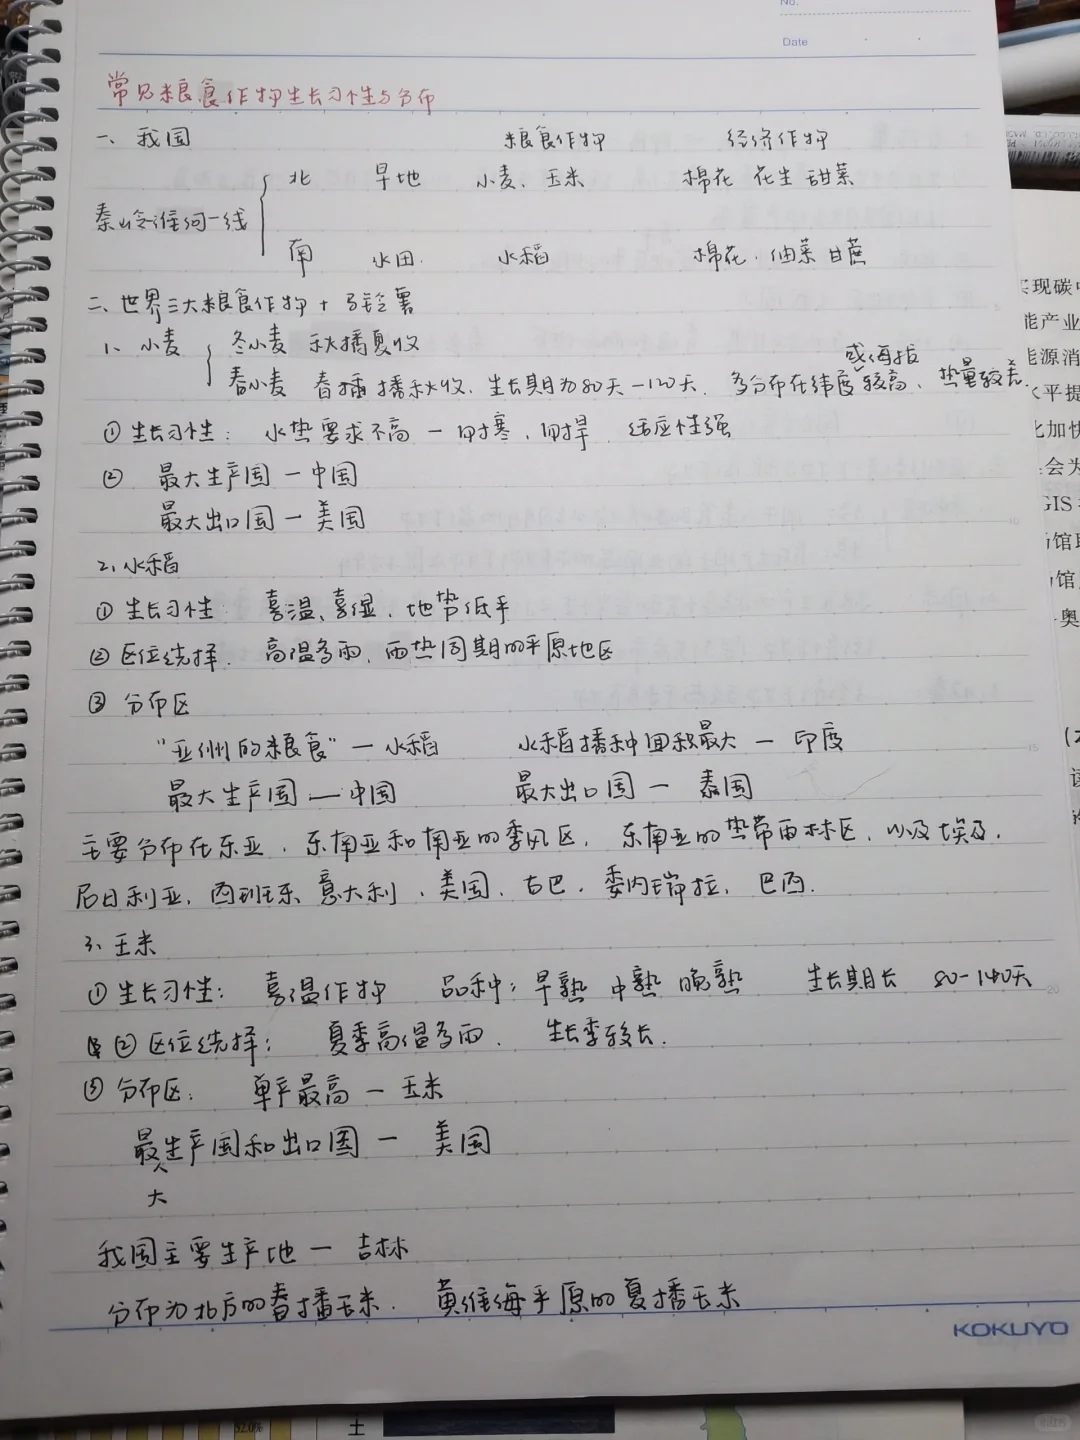 No.
Date
常见粮食作物生长习性与分布
一、我国 粮食作物 经济作物
北 旱地 小麦、玉米 棉花 花生 甜菜
秦岭淮河一线
南 水田. 水稻 棉花. 油菜 甘蔗
二、世界三大粮食作物 + 马铃薯
1、小麦 冬小麦 秋播夏收
或海拔
春小麦 春播 播秋收. 生长期为80天-120天. 多分布在纬度较高、热量较差.
① 生长习性: 水热要求不高 — 耐寒, 耐旱 适应性强
② 最大生产国 — 中国
最大出口国 — 美国
2、水稻
① 生长习性 喜温、喜湿、地势低平
② 区位选择. 高温多雨, 雨热同期的平原地区
③ 分布区
"亚州的粮食" — 水稻 水稻播种面积最大 — 印度
最大生产国 — 中国 最大出口国 — 泰国
主要分布在东亚、东南亚和南亚的季风区, 东南亚的热带雨林区, 以及埃及,
尼日利亚, 西班牙, 意大利, 美国, 古巴, 委内瑞拉, 巴西.
3、玉米
① 生长习性: 喜温作物 品种: 早熟 中熟 晚熟 生长期长 80-140天
② 区位选择: 夏季高温多雨. 生长季较长.
③ 分布区: 单产最高 — 玉米
最生产国和出口国 — 美国
大
我国主要生产地 — 吉林
分布为北方的春播玉米. 黄淮海平原的夏播玉米
KOKUYO
实现碳中
能产业
能源消
水平提
化加快
会为
GIS
馆
馆
奥
52.0%
土
小红书